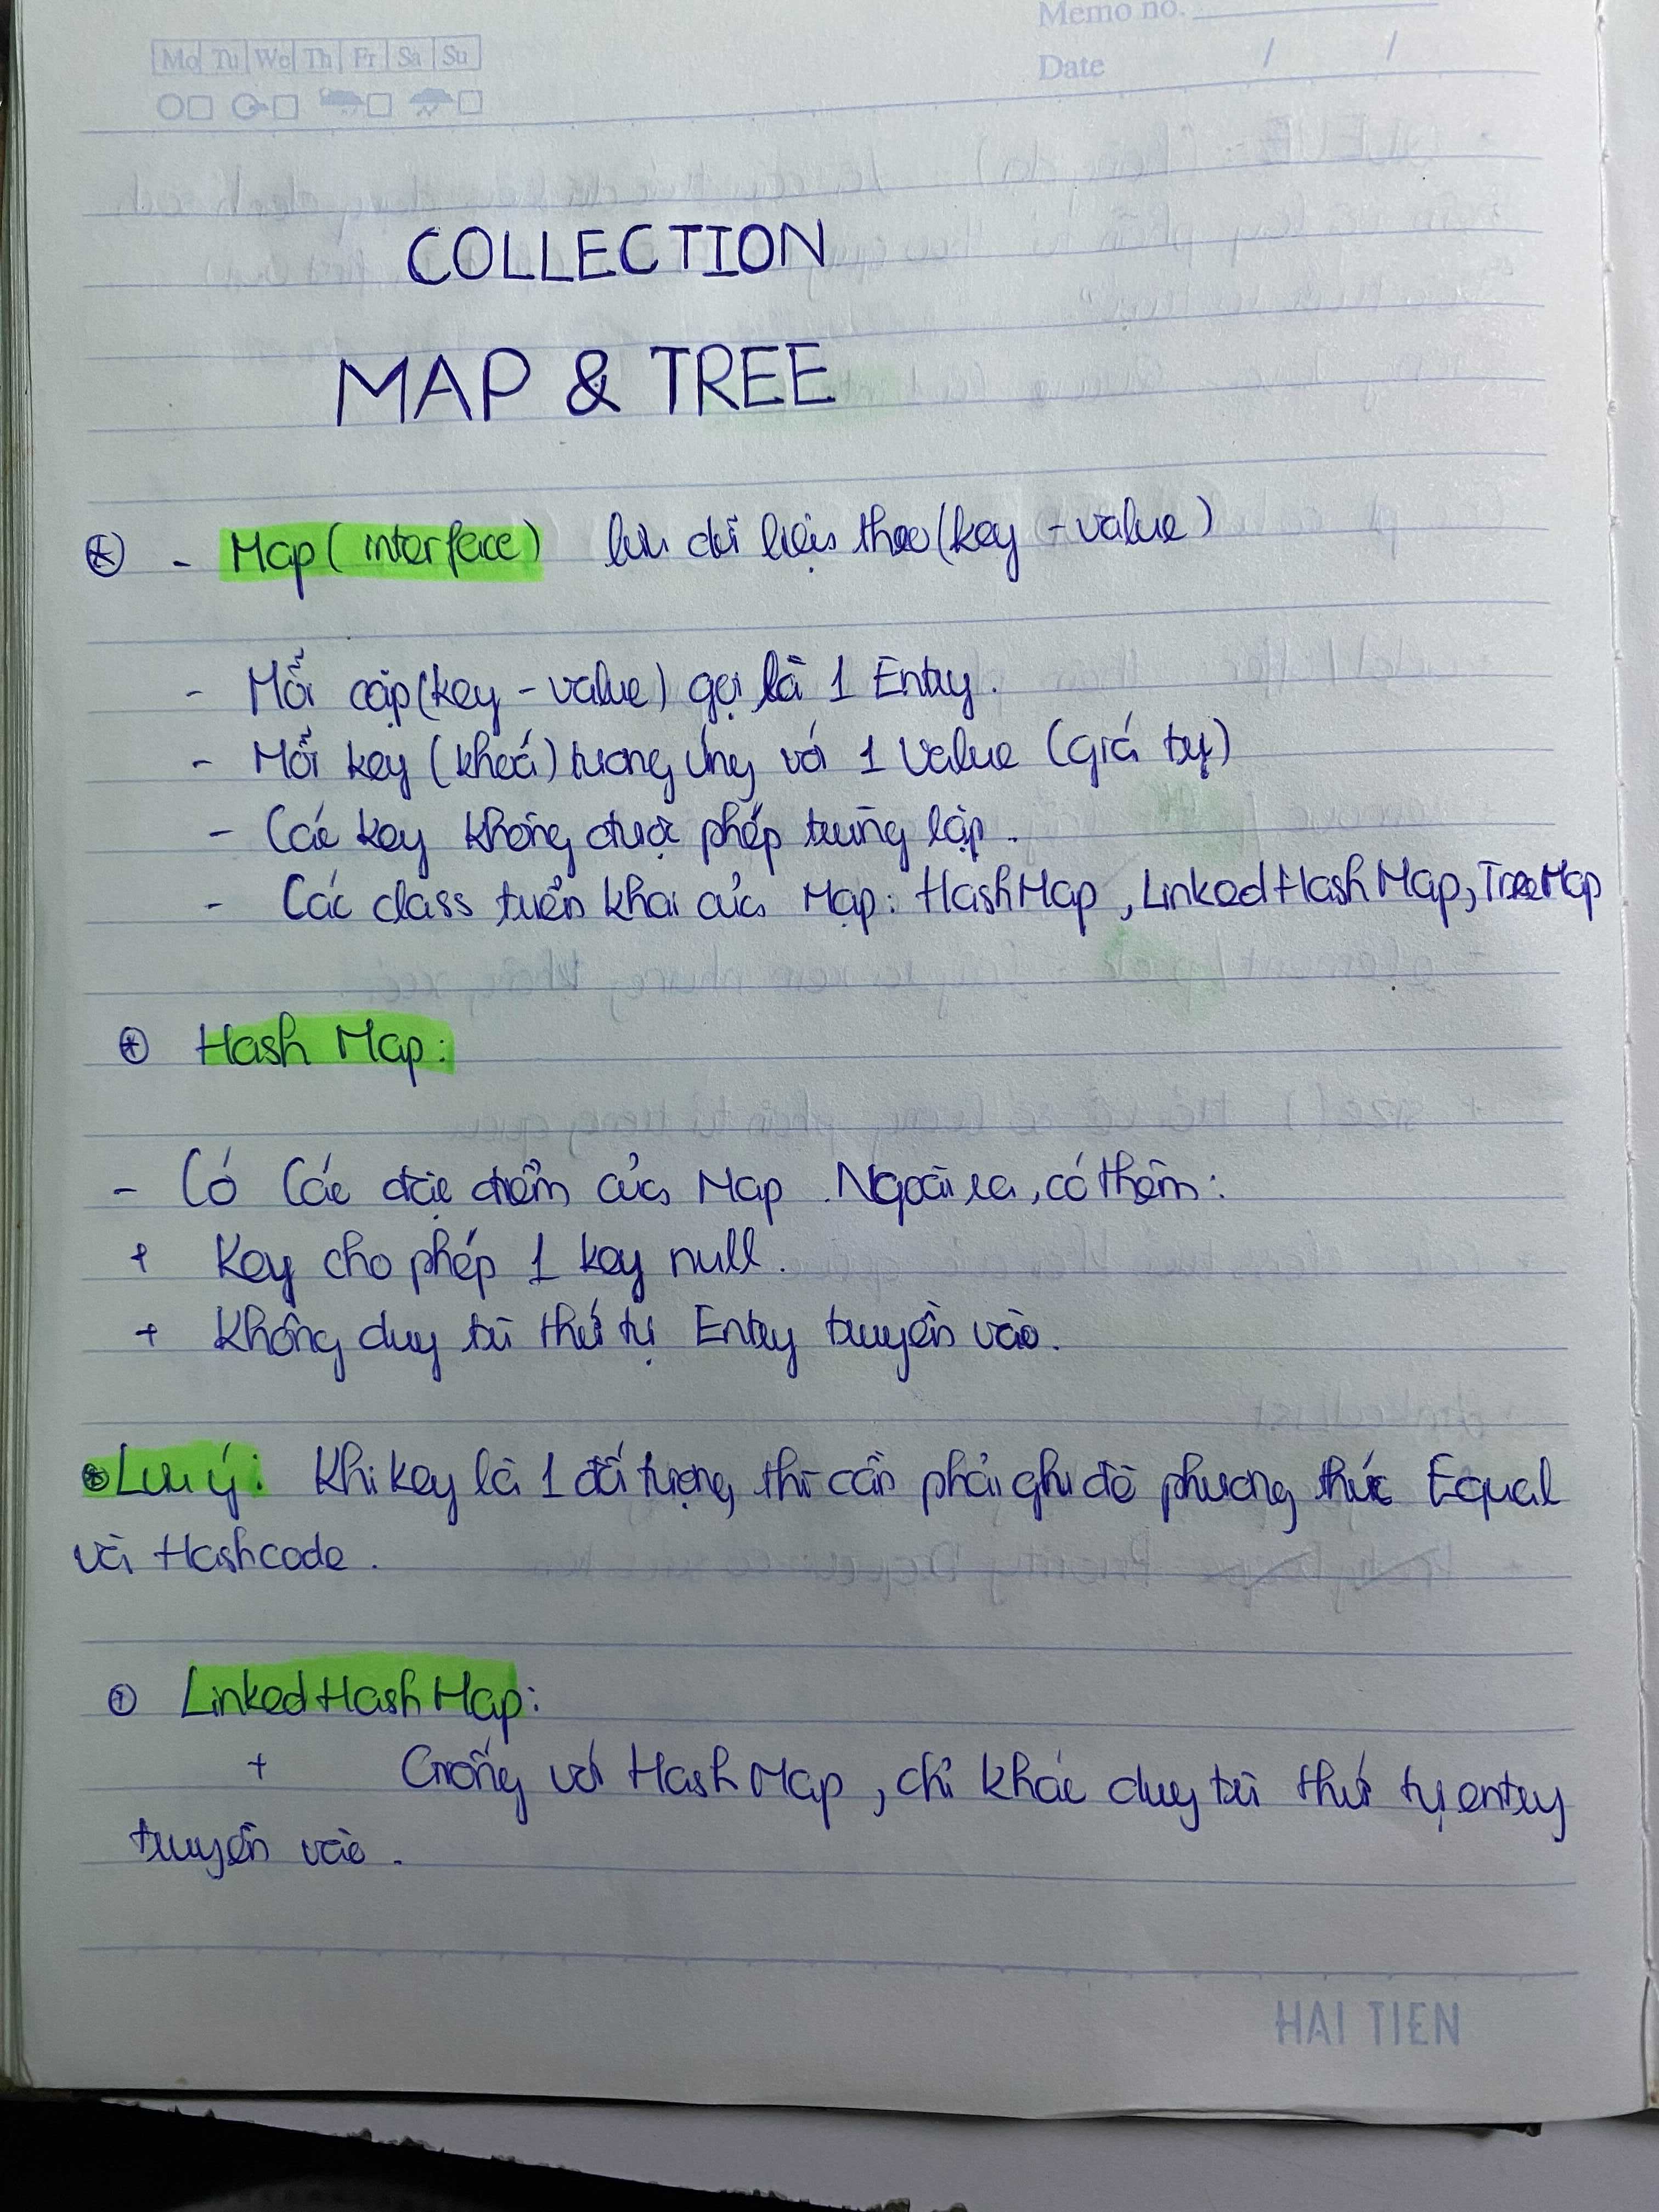 Memo no.
Mo Tu We Th Fr Sa Su
Date / /
COLLECTION
MAP & TREE
- Map (interface) lưu dữ liệu theo (key - value)
- Mỗi cặp (key - value) gọi là 1 Entry.
- Mỗi key (khoá) tương ứng với 1 Value (giá trị)
- Các key không được phép trùng lặp.
- Các class triển khai của Map: HashMap, LinkedHashMap, TreeMap
Hash Map:
- Có Các đặc điểm của Map. Ngoài ra, có thêm:
+ Key cho phép 1 key null.
+ Không duy trì thứ tự Entry truyền vào.
Lưu ý: Khi key là 1 đối tượng thì cần phải ghi đè phương thức Equal
và Hashcode.
LinkedHashMap:
+ Giống với HashMap, chỉ khác duy trì thứ tự entry
truyền vào.
HAI TIEN